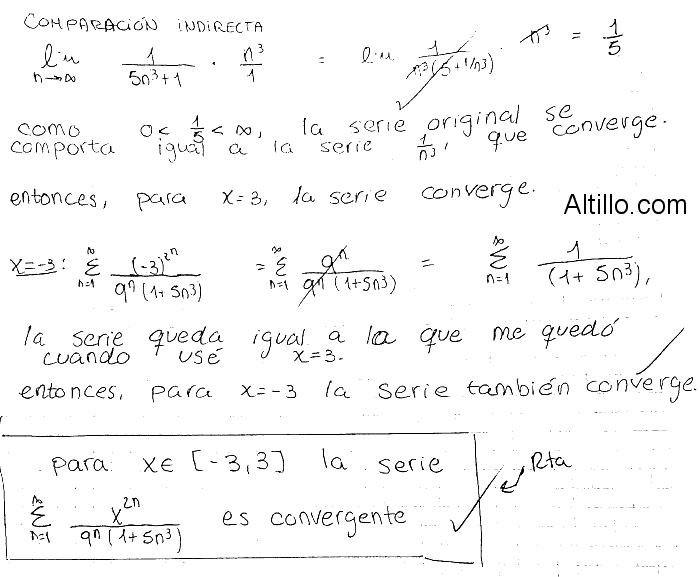 COMPARACIÓN INDIRECTA
lim n→∞ 1/(5n³+1) · n³/1 = lim 1/(n³(5+1/n³)) · n³ = 1/5
como 0 < 1/5 < ∞, la serie original se
comporta igual a la serie 1/n³, que converge.
entonces, para x=3, la serie converge.
Altillo.com
x=-3: ∞ Σ n=1 (-3)²ⁿ/(9ⁿ(1+5n³)) = ∞ Σ n=1 9ⁿ/(9ⁿ(1+5n³)) = ∞ Σ n=1 1/(1+5n³),
la serie queda igual a la que me quedó
cuando usé x=3.
entonces, para x=-3 la serie también converge.
para x∈ [-3,3] la serie
Rta
∞ Σ n=1 x²ⁿ/(9ⁿ(1+5n³)) es convergente